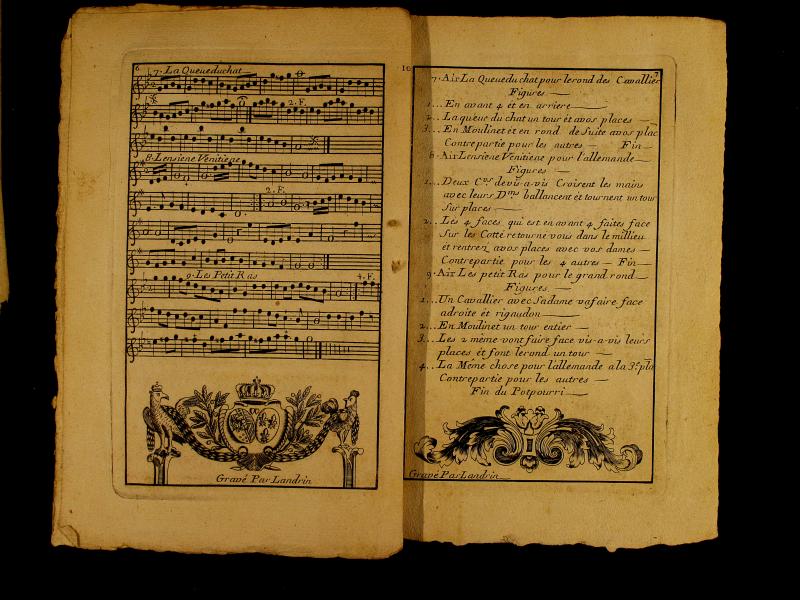 6
7. La Queueduchat
2. F.
8. Lensiene Venitiene
2. F.
9. Les Petit Ras
4. F.
Gravé Par Landrin
10
7
7. Air La Queuedu chat pour lerond des Cavallier
Figures
1... En avant 4 et en arriere
2... La queue du chat un tour et avos places
3... En Moulinet et en rond de Suite avos plac
Contrepartie pour les autres Fin
8 Air Lensiene Venitiene pour l'allemande
Figures
1... Deux C.rs devis-a-vis Croisent les mains
avec leurs D.mes ballancent et tournent un tour
Sur places
2... Les 4 faces qui est en avant 4 faites face
Sur les Cotté retourné vous dans le millieu
et rentrez avos places avec vos dames
Contrepartie pour les 4 autres Fin
9. Air Les petit Ras pour le grand rond
Figures
1... Un Cavallier avec Sadame vafaire face
adroite et rigaudon
2... En Moulinet un tour entier
3... Les 2 même vont faire face vis-a-vis leurs
places et font lerond un tour
4... La Même chose pour l'allemande a la 3.e pla
Contrepartie pour les autres
Fin du Potpourri
Gravé Par Landrin